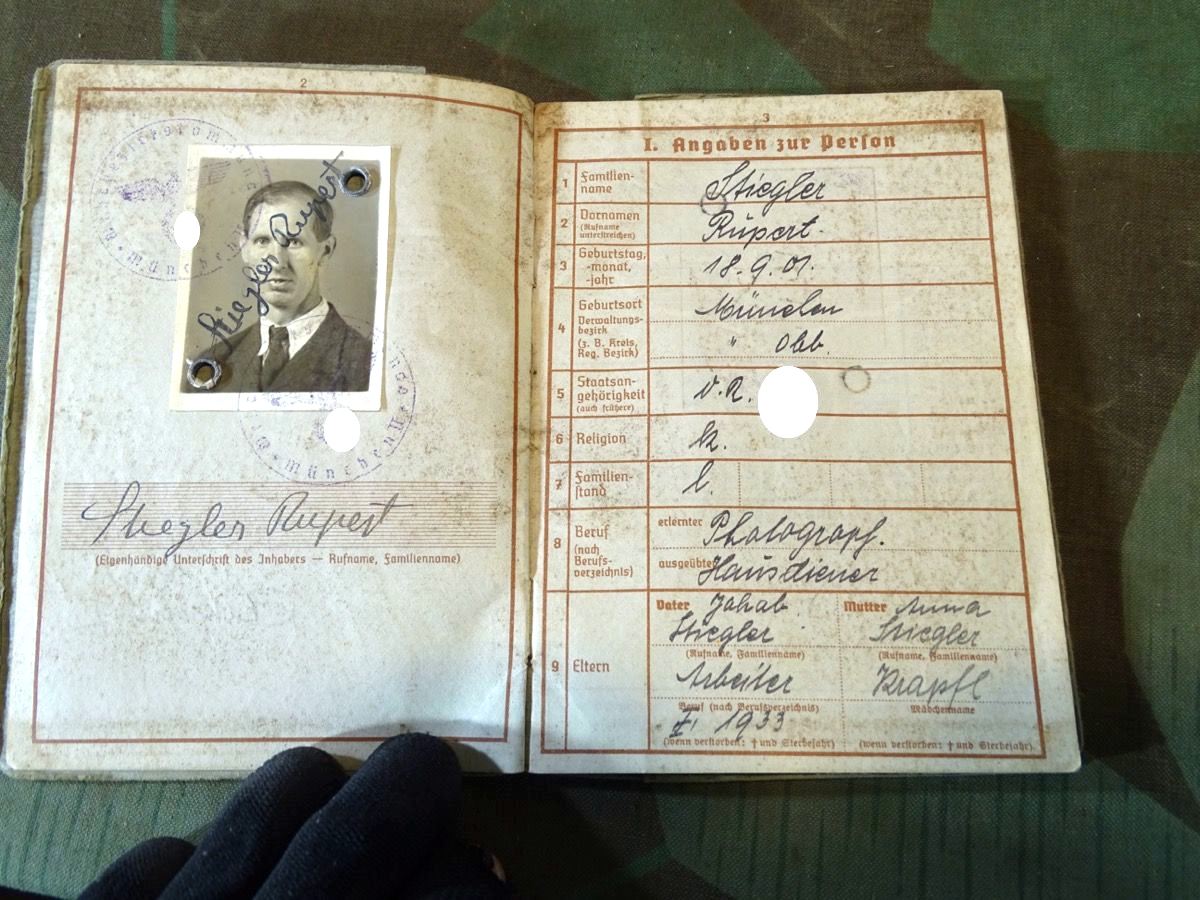 2
Stiegler Rupert
München
Stiegler Rupert
(Eigenhändige Unterschrift des Inhabers — Rufname, Familienname)
3
I. Angaben zur Person
1 Familien-
name
Stiegler
2 Vornamen
(Rufname
unterstreichen)
Rupert.
3 Geburtstag,
-monat,
-jahr
18.9.01.
4 Geburtsort
Verwaltungs-
bezirk
(z. B. Kreis,
Reg. Bezirk)
München
" Obb.
5 Staatsan-
gehörigkeit
(auch frühere)
D.R.
6 Religion
k.
7 Familien-
stand
l.
8 Beruf
(nach
Berufs-
verzeichnis)
erlernter Photograf.
ausgeübter Hausdiener
9 Eltern
Vater Jakob
Stiegler
(Rufname, Familienname)
Arbeiter
Beruf (nach Berufsverzeichnis)
1933
(wenn verstorben: † und Sterbejahr)
Mutter Anna
Stiegler
(Rufname, Familienname)
Krapfl
Mädchenname
(wenn verstorben: † und Sterbejahr)